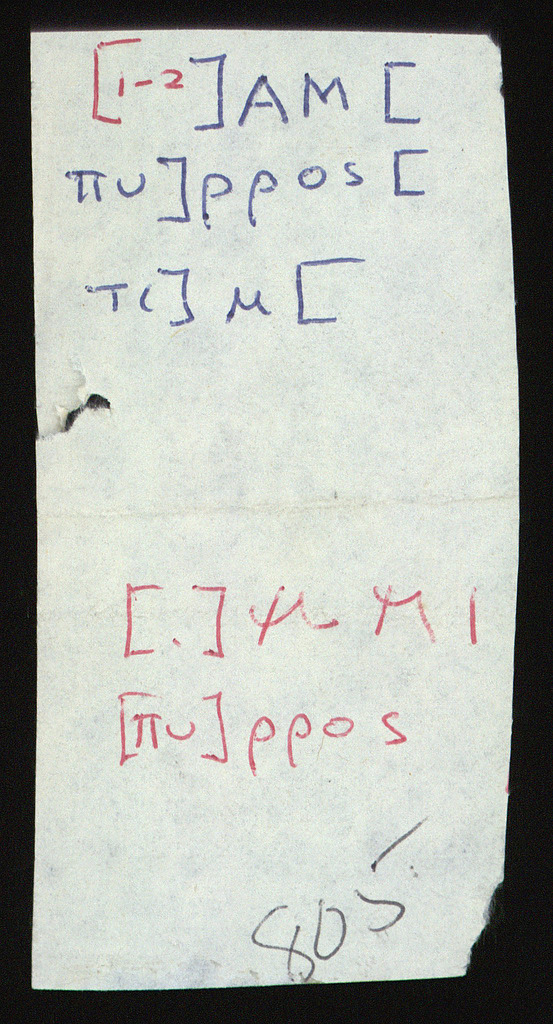 [1-2]AM[
πυ]ρρος[
τι]μ[
[.]μMI
[πυ]ρρος
805